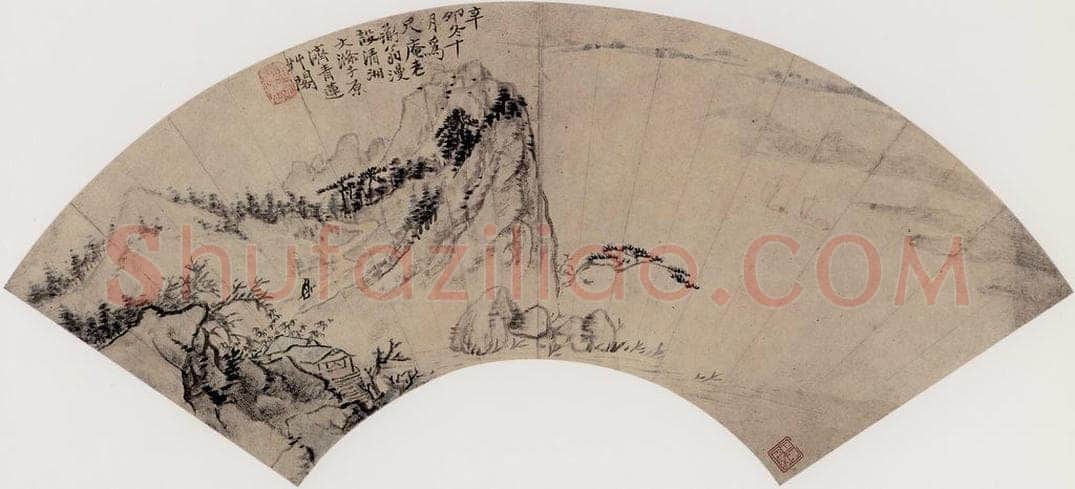 辛
卯冬十
月為
尺庵老
翁漫
設清湘
大滌子原
濟青蓮
艸閣
Shufaziliao.COM